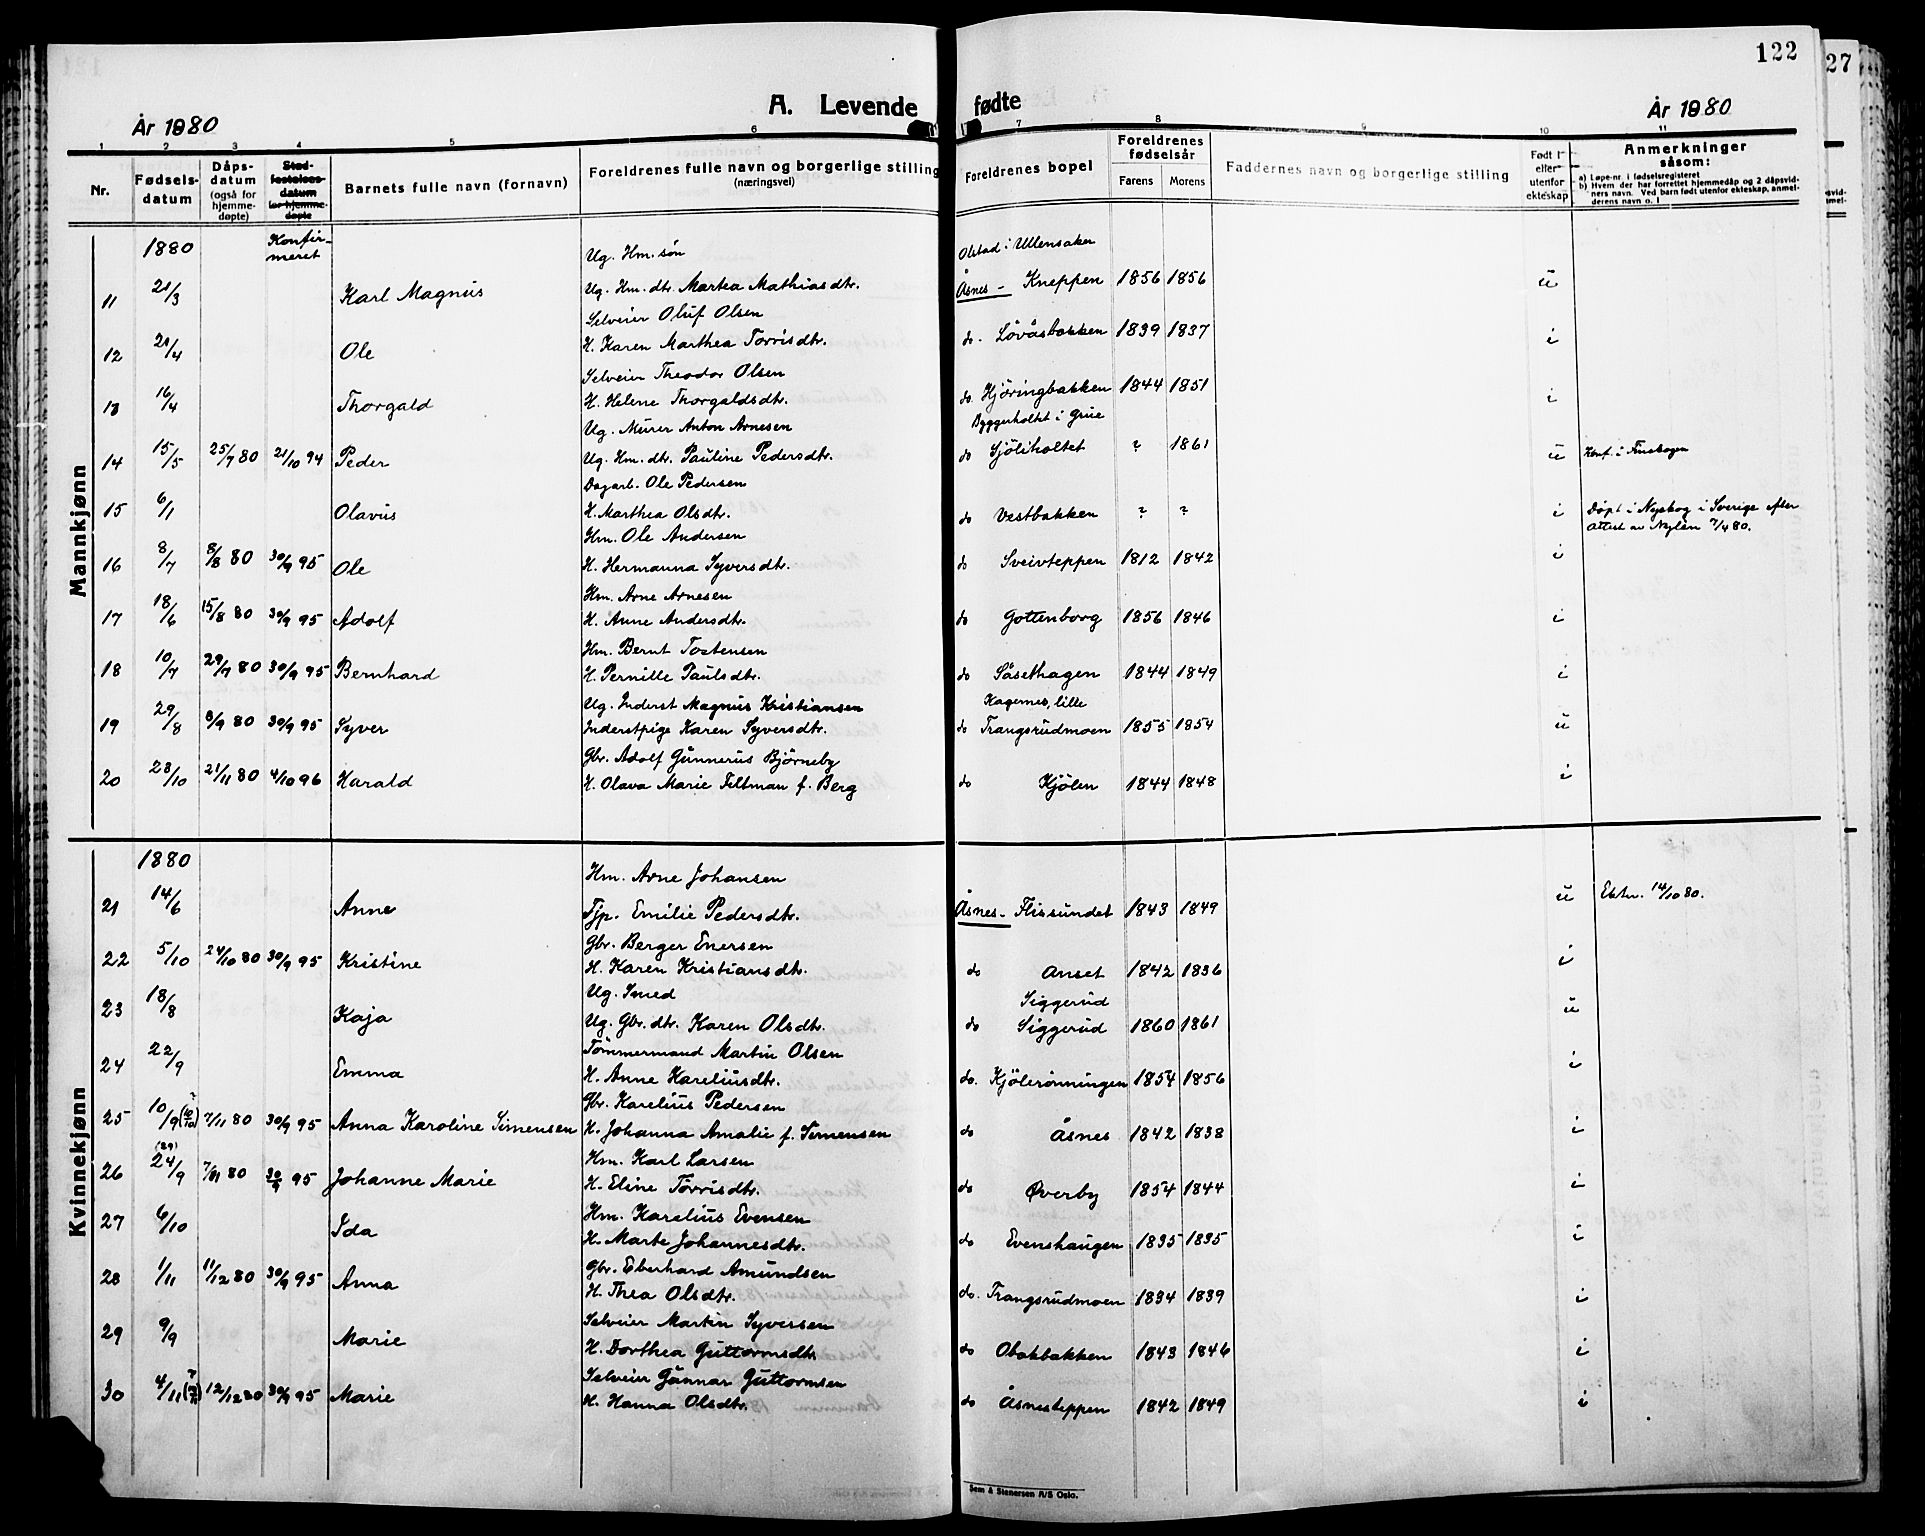 122
27
A. Levende fødte
År 1880
År 1880
1 2 3 4 5 6 7 8 9 10 11
Nr.
Fødsels-datum
Dåps-datum (også for hjemme-døpte)
Stad-festelses-datum for hjemme-døpte
Barnets fulle navn (fornavn)
Foreldrenes fulle navn og borgerlige stilling (næringsvei)
Foreldrenes bopel
Foreldrenes fødselsår
Farens Morens
Faddernes navn og borgerlige stilling
Født i eller utenfor ekteskap
Anmerkninger såsom:
a) Løpe-nr. i fødselsregisteret
b) Hvem der har forrettet hjemmedåp og 2 dåpsvid-
ners navn. Ved barn født utenfor ekteskap, anmel-
derens navn o. l
Mannkjønn
1880 Konfir-meret Ug. Hm. søn Olstad i Ullensaker
11 21/3 Karl Magnus Ug. Hm. dtr. Martea Mathiasdtr. Åsnes - Kneppen 1856 1856 u
Selveier Oluf Olsen
12 21/4 Ole H. Karen Marthea Torrisdtr. do. Lövåsbakken 1839 1837 i
Selveier Theodor Olsen
13 16/4 Thorgald H. Helene Thorgaldsdtr. do. Hjöringbakken 1844 1851 i
Ug. Murer Anton Arnesen Byggerholtet i Grue
14 15/5 25/7 80 21/10 94 Peder Ug. Hm. dtr. Pauline Pedersdtr. do Sjöliholtet ? 1861 u Konf. i Finskogen
Dagarb. Ole Pedersen
15 6/1 Olavus H. Marthea Olsdtr. do Vestbakken ? ? i Döpt i Nyskog i Sverige efter
Attest av Nylén 7/4 80.
Hm. Ole Andersen
16 8/7 8/8 80 30/9 95 Ole H. Hermanna Syversdtr. do Sveivteppen 1812 1842 i
Hm. Arne Arnesen
17 18/6 15/8 80 30/9 95 Adolf H. Anne Andersdtr. do Gottenborg 1856 1846 i
Hm. Bernt Tostensen
18 10/7 29/7 80 30/9 95 Bernhard H. Pernille Paulsdtr. do Såsethagen 1844 1849 i
Ug. Inderst Magnus Kristiansen Kagernes, lille
19 29/8 8/9 80 30/9 95 Syver Inderstpige Karen Syversdtr. do Trangsrudmoen 1855 1854 u
Gbr. Adolf Gunnerus Björneby
20 23/10 21/11 80 4/10 96 Harald H. Olava Marie Feltman f. Berg do Kjölen 1844 1848 i
Kvinnekjønn
1880 Hm. Arne Johansen
21 14/6 Anne Tjp. Emilie Pedersdtr. Åsnes - Flissundet 1843 1849 u Ektev. 14/10 80.
Gbr. Berger Enersen
22 5/10 24/10 80 30/9 95 Kristine H. Karen Kristiansdtr. do Anset 1842 1836 i
Ug. Smed Siggerud
23 18/8 Kaja Ug. Gbr. dtr. Karen Olsdtr. do Siggerud 1860 1861 u
Tömmermand Martin Olsen
24 22/9 Emma H. Anne Kareliusdtr. do. Kjölerönningen 1854 1856 i
Gbr. Karelius Pedersen
25 10/9 (10/10?) 7/11 80 30/9 95 Anna Karoline Simensen H. Johanna Amalie f. Simensen do Åsnes 1842 1838 i
(29) Hm. Karl Larsen
26 24/9 7/11 80 30/9 95 Johanne Marie H. Eline Torrisdtr. do Øverby 1854 1844 i
Hm. Karelius Evensen
27 6/10 Ida H. Marte Johannesdtr. do Evenshaugen 1835 1835 i
Gbr. Eberhard Amundsen
28 1/11 11/12 80 30/9 95 Anna H. Thea Olsdtr. do. Trangsrudmoen 1834 1839 i
Selveier Martin Syversen
29 9/9 Marie H. Dorthea Guttormsdtr. do Obakbakken 1843 1846 i
Selveier Gunnar Guttormsen
30 4/11 12/12 80 30/9 95 Marie H. Hanna Olsdtr. do Åsnesteppen 1842 1849 i
Sem & Stenersen A/S Oslo.